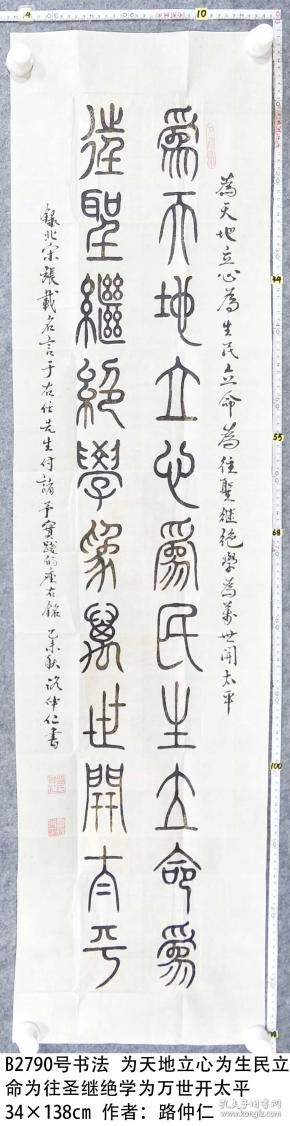 為天地立心為生民立命為往聖继绝學為萬世開太平
爲天地立心爲民生立命爲
往聖繼絕學爲萬世開太平
録北宋張載名言于右任先生付諸予實踐的座右銘 乙未秋 路仲仁書
B2790号书法 为天地立心为生民立
命为往圣继绝学为万世开太平
34×138cm 作者：路仲仁